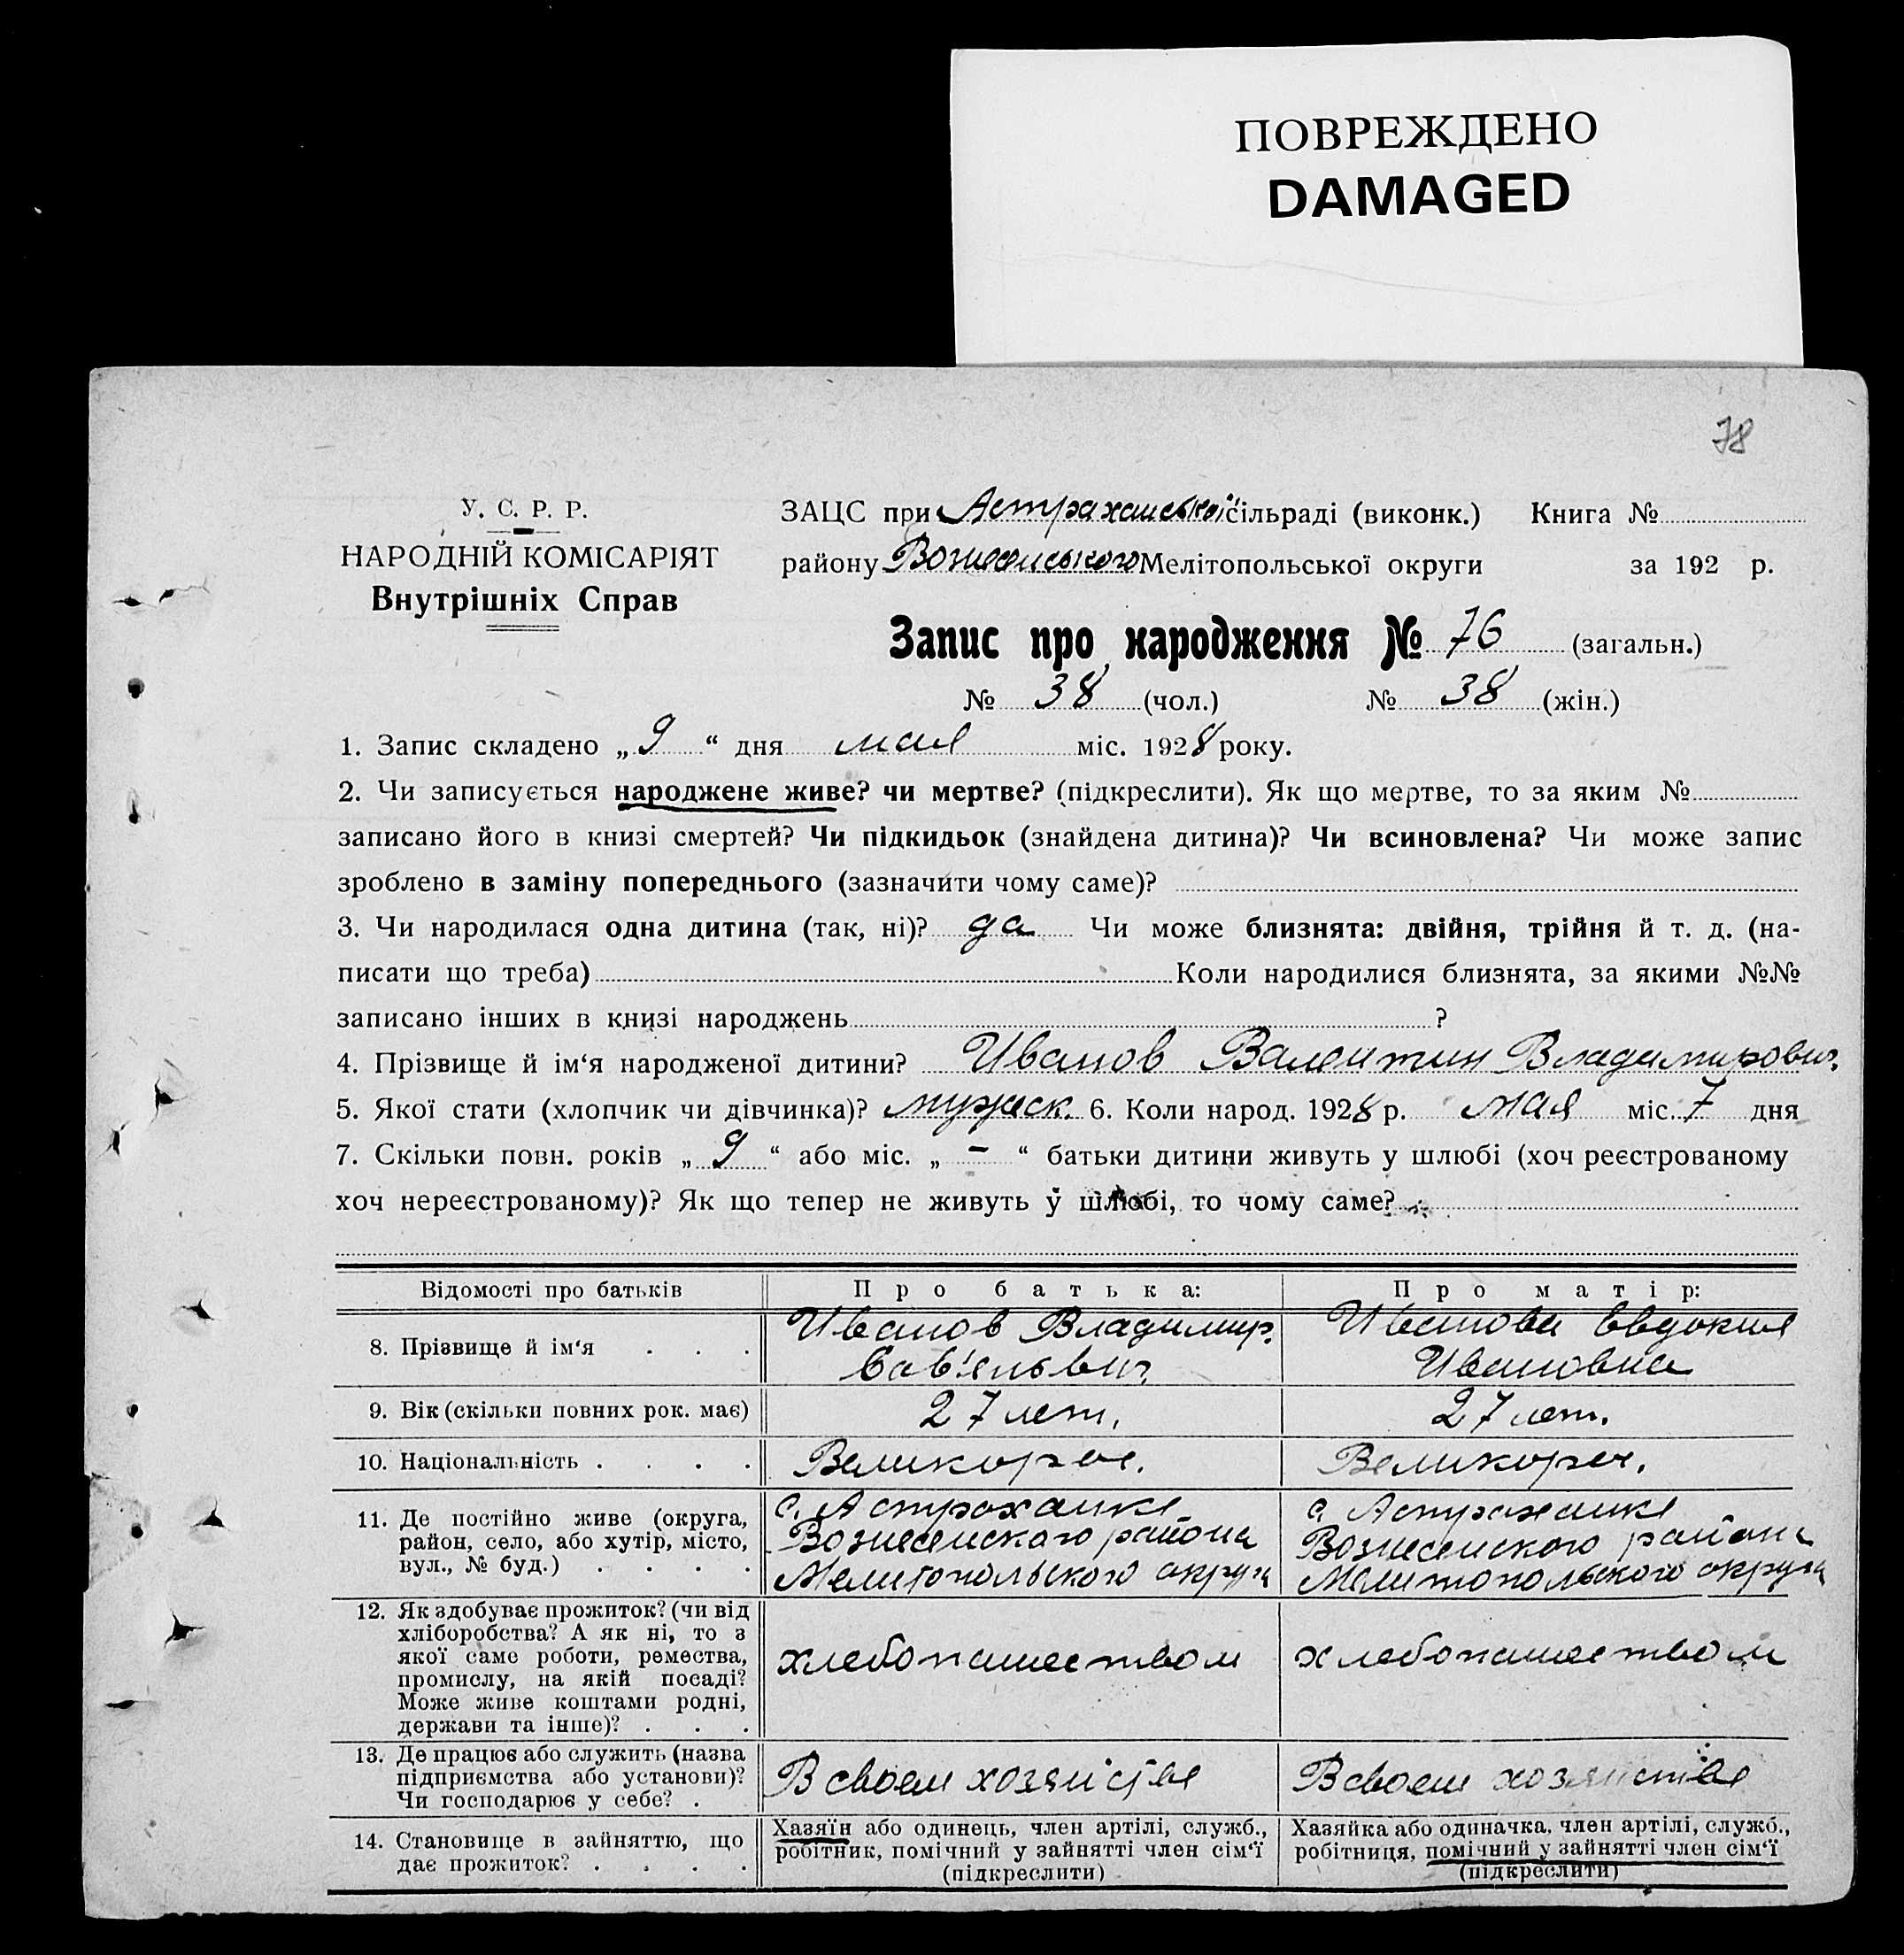 ПОВРЕЖДЕНО
DAMAGED
78
У. С. Р. Р.
НАРОДНІЙ КОМІСАРІЯТ
Внутрішніх Справ
ЗАЦС при Астраханської сільраді (виконк.) Книга №
району Вознесенського Мелітопольської округи за 192 р.
Запис про народження № 76 (загальн.)
№ 38 (чол.) № 38 (жін.)
1. Запис складено „ 9 “ дня мая міс. 1928 року.
2. Чи записується народжене живе? чи мертве? (підкреслити). Як що мертве, то за яким №
записано його в книзі смертей? Чи підкидьок (знайдена дитина)? Чи всиновлена? Чи може запис
зроблено в заміну попереднього (зазначити чому саме)?
3. Чи народилася одна дитина (так, ні)? да Чи може близнята: двійня, трійня й т. д. (на-
писати що треба) Коли народилися близнята, за якими №№
записано інших в книзі народжень ?
4. Прізвище й ім‘я народженої дитини? Иванов Валентин Владимирович.
5. Якої стати (хлопчик чи дівчинка)? мужеск. 6. Коли народ. 1928 р. мая міс. 7 дня
7. Скільки повн. років „ 9 “ або міс. „ – “ батьки дитини живуть у шлюбі (хоч реєстрованому
хоч нереєстрованому)? Як що тепер не живуть у шлюбі, то чому саме?
Відомості про батьків Про батька: Про матір:
8. Прізвище й ім‘я . . . Иванов Владимир. Иванова Евдокия
Сав'ельвич. Ивановна
9. Вік (скільки повних рок. має) 27 лет. 27 лет.
10. Національність . . . . Великорос. Великорос.
11. Де постійно живе (округа, с. Астроханке с. Астраханке
район, село, або хутір, місто, Вознесенского района Вознесенского района
вул., № буд.) . . . . Мелитопольского округа Мелитопольского округа
12. Як здобуває прожиток? (чи від
хліборобства? А як ні, то з
якої саме роботи, ремества, хлебопашеством хлебопашеством
промислу, на якій посаді?
Може живе коштами родні,
держави та інше)? . . .
13. Де працює або служить (назва
підприємства або установи)? В своем хозяйстве В своем хозяйстве
Чи господарює у себе? .
14. Становище в зайняттю, що Хазяїн або одинець, член артілі, служб., Хазяйка або одиначка, член артілі, служб.,
дає прожиток? . . . . робітник, помічний у зайнятті член сім‘ї робітниця, помічний у зайнятті член сім‘ї
(підкреслити) (підкреслити)